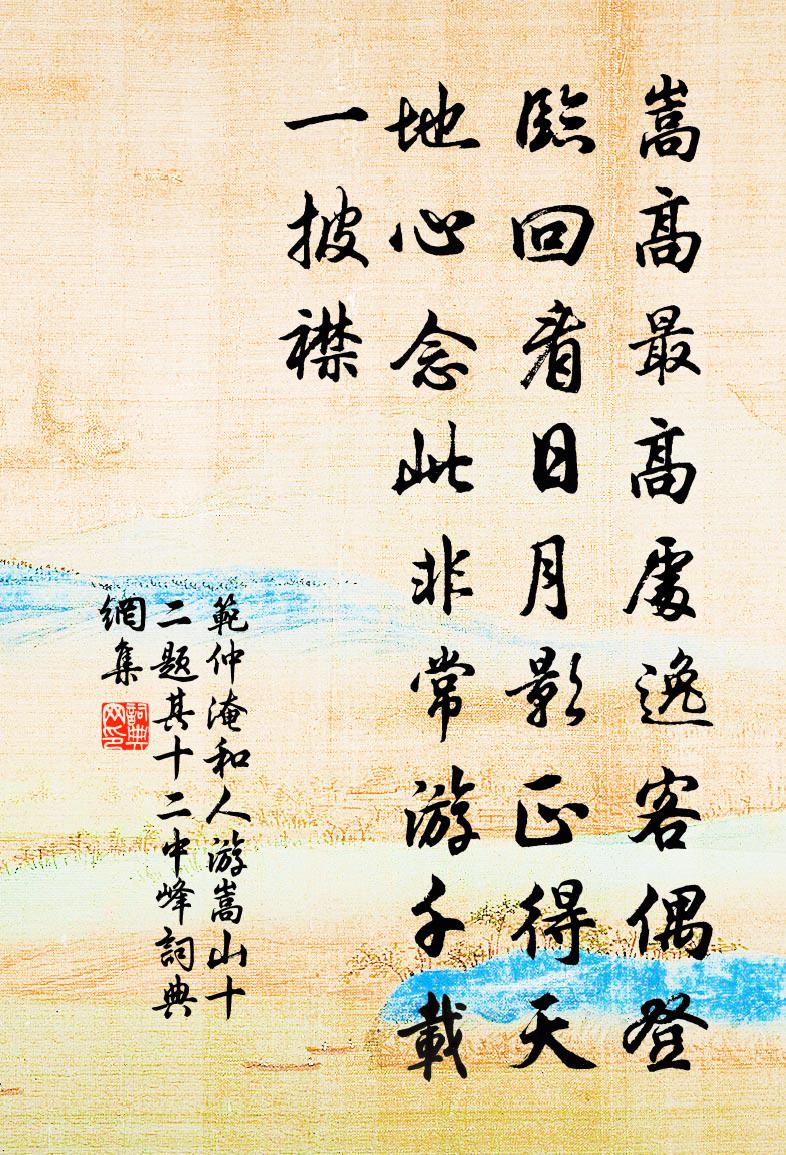 嵩高最高處逸客偶登
臨回看日月影正得天
地心念此非常游千載
一披襟
範仲淹和人游嵩山十
二題其十二中峰詞典
網集
詞典
网印